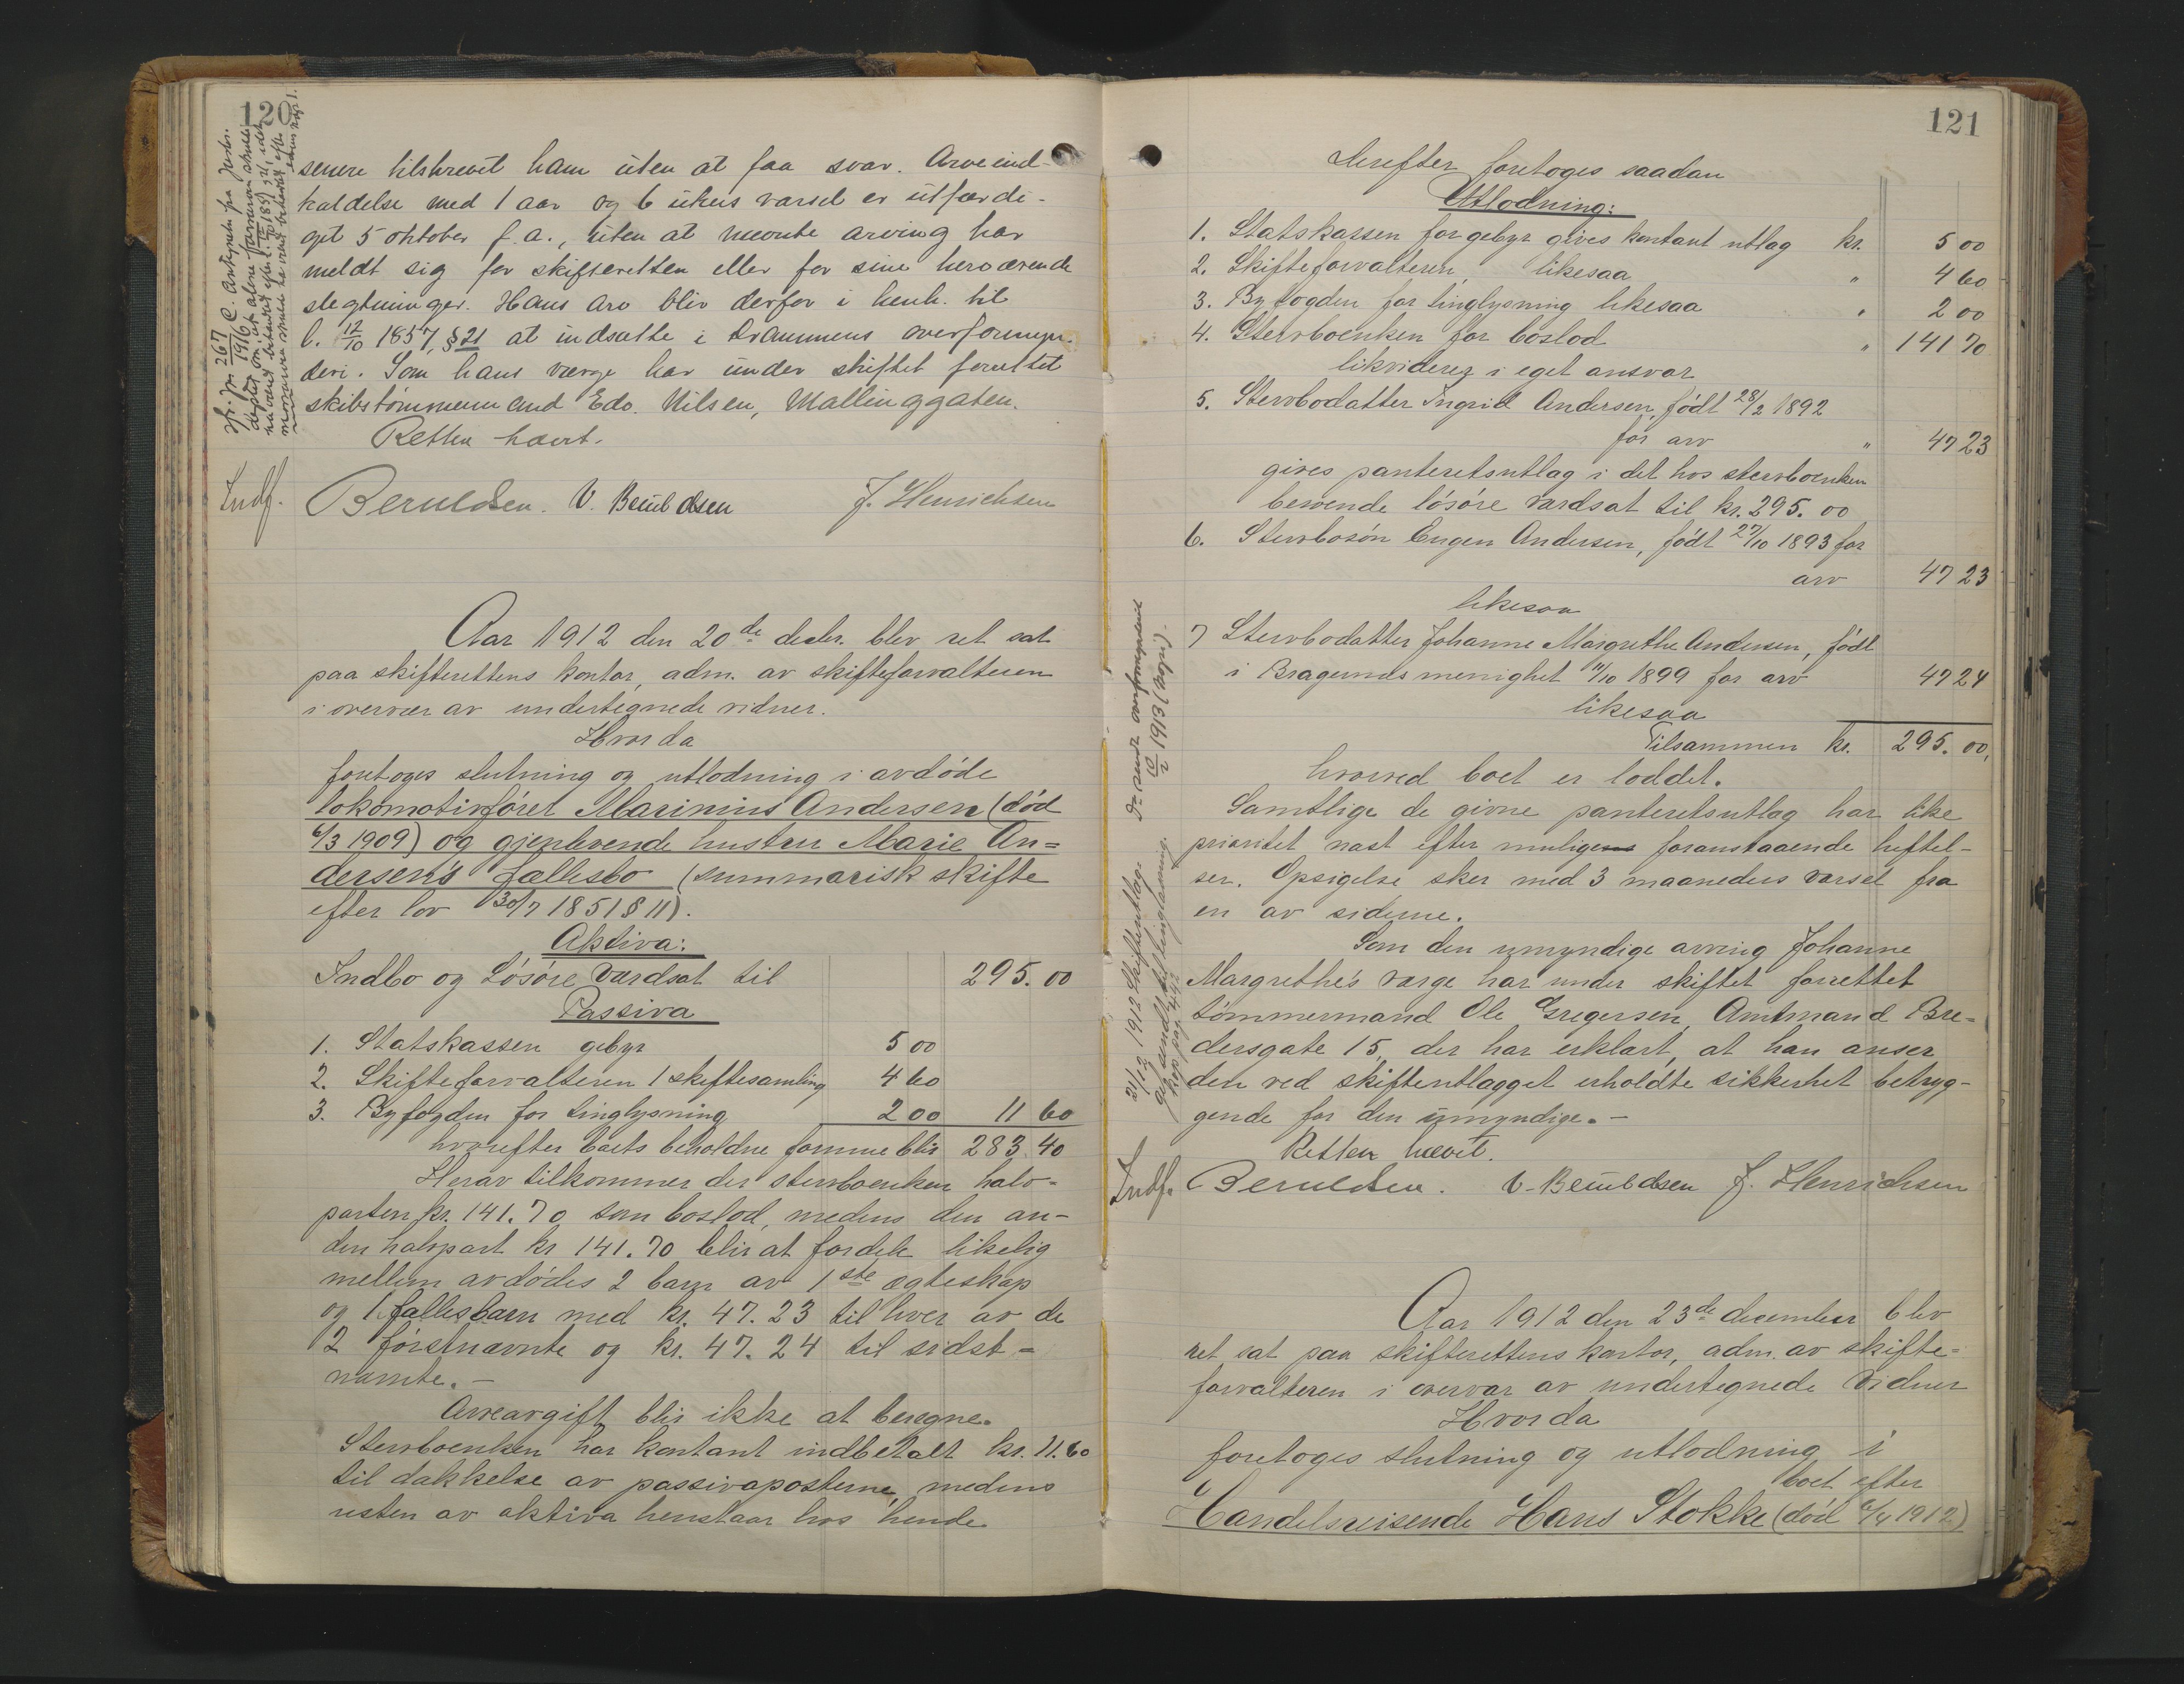 120
senere tilskrevet ham uten at faa svar. Arveind-
kaldelse med 1 aar og 6 ukers varsel er utfærdi-
get 5 oktober f.a., uten at nævnte arving har
meldt sig for skifteretten eller for sine herværende
slegtninger. Hans arv blir derfor i henh. til
l. 12/10 1857, §21 at indsætte i Drammens overformyn-
deri. Som hans værge har under skiftet forrettet
skibstømmermand Edv. Nilsen, Mallinggaten.
Retten hævet.
Indf. Beruldsen. V. Beruldsen J. Henrichsen
Aar 1912 den 20de decbr. blev ret sat
paa skifterettens kontor, adm. av skifteforvalteren
i overvær av undertegnede vidner.
Hvorda
foretoges slutning og utlodning i avdøde
lokomotivfører Marinius Andersen (død
6/3 1909) og gjenlevende hustru Marie An=
dersen's fællesbo (summarisk skifte
efter lov 30/7 1851 § 11).
Aktiva:
Indbo og Løsøre værdsat til 295.00
Passiva
1. Statskassen gebyr 5 00
2. Skifteforvalteren 1 skiftesamling 4 60
3. Byfogden for tinglysning 2 00 11 60
hvorefter boets beholdne formue blir 283.40
Herav tilkommer der stervboenken halv-
parten kr. 141.70 som boslod, medens den an-
den halvpart kr 141.70 blir at fordele likelig
mellem avdødes 2 barn av 1ste ægteskap
og 1 fællesbarn med kr. 47.23 til hver av de
2 førstnævnte og kr. 47.24 til sidst-
nævnte.-
Arveavgift blir ikke at beregne.
Stervboenken har kontant indbetalt kr. 11.60
til dækkelse av passivaposterne, medens
resten av aktiva henstaar hos hende
121
Derefter foretoges saadan
Utlodning:
1. Statskassen for gebyr gives kontant utlag kr. 5 00
2. Skifteforvalteren, likesaa " 4 60
3. Byfogden for tinglysning likesaa " 2 00
4. Stervboenken for boslod " 141 70
likviderer i eget ansvar
5. Stervbodatter Ingrid Andersen, født 28/2 1892
for arv " 47 23
gives panteretsutlag i det hos stervboenken
beroende løsøre værdsat til kr. 295.00
6. Stervbosøn Eugen Andersen, født 27/10 1893 for
arv 47 23
likesaa
7 Stervbodatter Johanne Margrethe Andersen, født
i Bragernes menighet 11/10 1899 for arv 47 24
likesaa
Tilsammen kr. 295.00,
hvorved boet er loddet.
Samtlige de givne panteretsutlag har like
prioritet næst efter mulige foranstaaende heftel-
ser. Opsigelse sker med 3 maaneders varsel fra
en av siderne.
Som den umyndige arving Johanne
Margrethe's værge har under skiftet forrettet
tømmermand Ole Gregersen, Amtmand Bre-
dersgate 15, der har erklært, at han anser
den ved skifteutlægget erholdte sikkerhet betryg-
gende for den umyndige.-
Retten hævet.
Indf. Beruldsen. V. Beruldsen J. Henrichsen
Aar 1912 den 23de december blev
ret sat paa skifterettens kontor, adm. av skifte=
forvalteren i overvær av undertegnede vidner
Hvorda
foretoges slutning og utlodning i
boet efter
Handelsreisende Hans Stokke (død 6/4 1912)